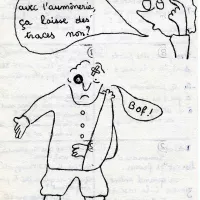 avec l'aumônerie,
ça laisse des
traces non?
BOF!